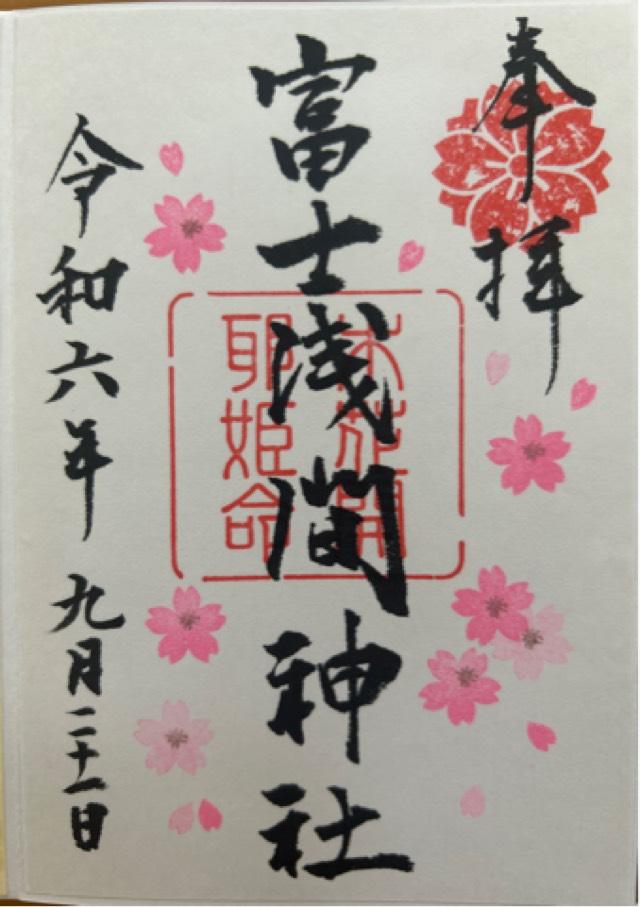 奉拝
富士浅間神社
木花開
耶姫命
令和六年九月二十一日